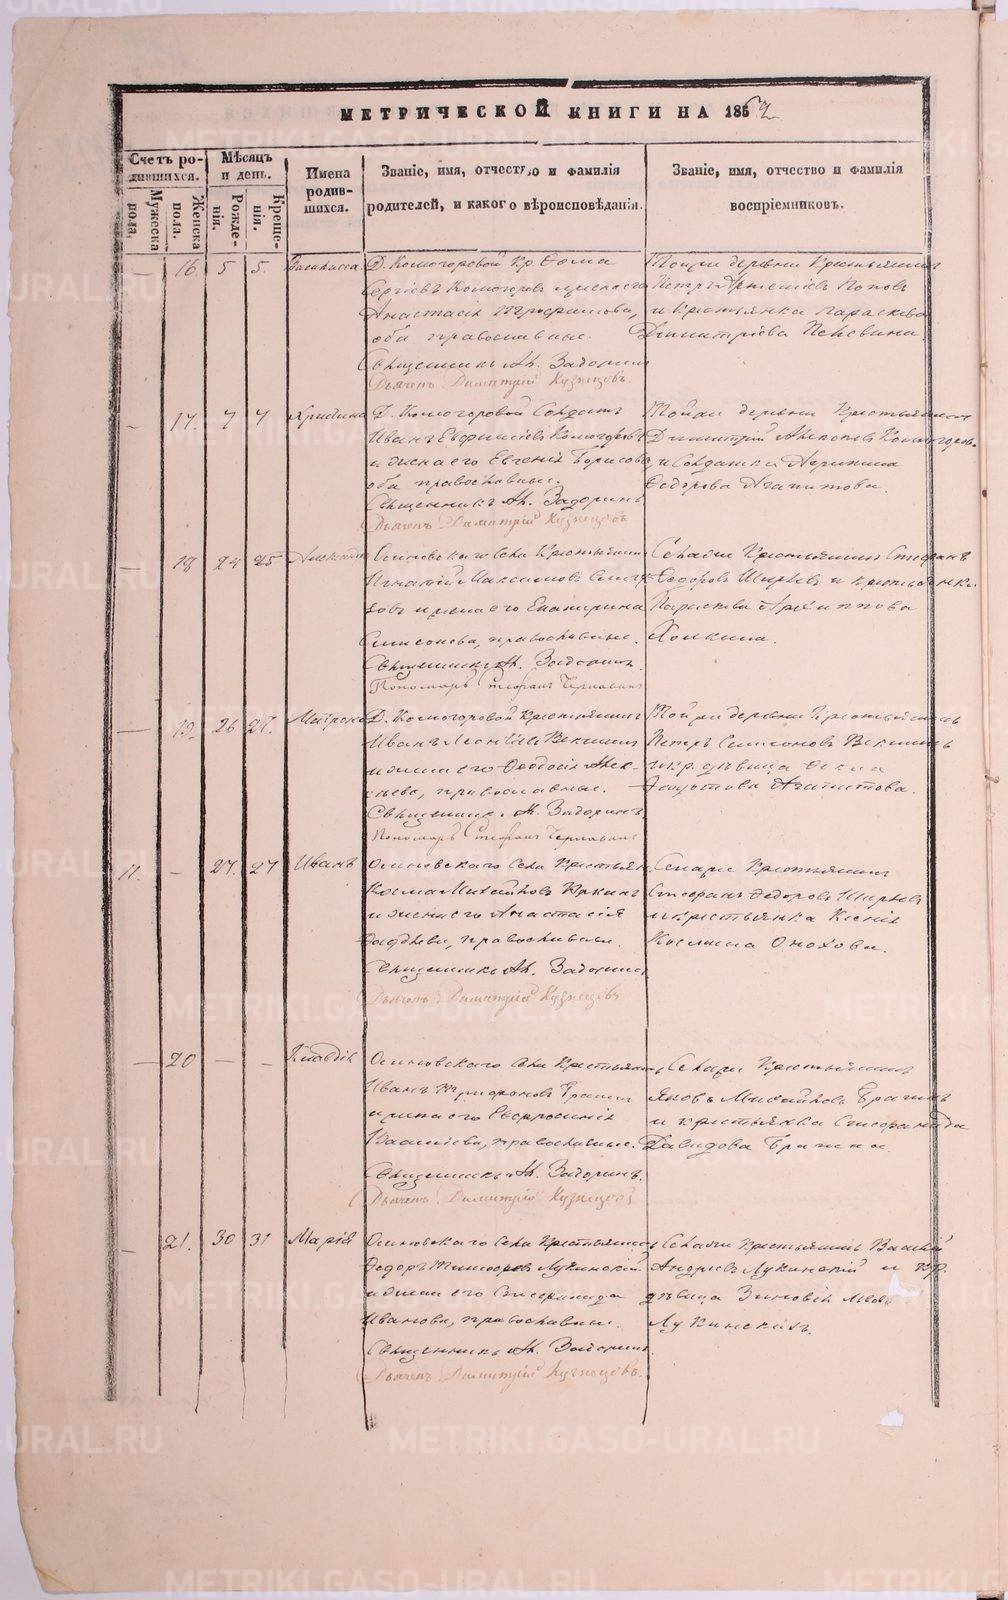 МЕТРИЧЕСКОЙ КНИГИ НА 1862
Счетъ ро-
дившихся.
Мужеска
пола.
Женска
пола.
Мѣсяцъ
и день.
Рожде-
нія.
Креще-
нія.
Имена
родив-
шихся.
Званіе, имя, отчество и фамилія
родителей, и какого вѣроисповѣданія.
Званіе, имя, отчество и фамилія
воспріемниковъ.
— 16. 5 5.
Д. Комогоровой Кр. Ѳома
Сергіевъ Комогоровъ и жена его
Анастасія Трофимова,
оба православные.
Священникъ Ал. Задоринъ
Дьячекъ Димитрій Кузнецовъ.
Той же деревни Крестьянинъ
Петръ Артеміевъ Поповъ
и Крестьянка Параскева
Димитріева
— 17. 7 7 Христина
Д. Комогоровой Солдатъ
Иванъ Евфиміевъ Комогоровъ
и жена его Евгенія Борисова
оба православные.
Священникъ Ал. Задоринъ
Дьячекъ Димитрій Кузнецовъ
Той же деревни Крестьянинъ
Димитрій Комогоровъ
и Солдатка Агрипина
Ѳедорова Агапитова.
— 18 24 25 Александра
Осиновскаго Села Крестьянинъ
Игнатій Максимовъ
и жена его Екатерина
Симеонова, православные.
Священникъ Ал. Задоринъ.
Пономарь Стефанъ Чернавинъ
Села же Крестьянинъ Стефанъ
Ѳедоровъ Ширяевъ и крестьянка
Параскева Архиппова
— 19. 26 27. Матрона
Д. Комогоровой Крестьянинъ
Иванъ Леонтіевъ Векшинъ
и жена его Ѳеодосія Алек-
сѣева, православные.
Священникъ Ал. Задоринъ
Пономарь Стефанъ Чернавинъ
Той же деревни Крестьянинъ
Петръ Симеоновъ Векшинъ
и кр. дѣвица Ѳекла
Агапитова.
11. — 27. 27 Иванъ
Осиновскаго Села Крестьян.
Косма Михайловъ Юркинъ
и жена его Анастасія
Фаддѣева, православные.
Священникъ Ал. Задоринъ
Дьячекъ Димитрій Кузнецовъ
Села же Крестьянинъ
Стефанъ Ѳедоровъ Ширяевъ
и крестьянка Ксенія
Космина Онохова.
— 20 — — Клавдія
Осиновскаго Села Крестьян.
Иванъ Трифоновъ Брагинъ
и жена его Евфросинія
Васильева, православные.
Священникъ Ал. Задоринъ.
Дьячекъ Димитрій Кузнецовъ
Села же Крестьянинъ
Яковъ Михайловъ Брагинъ
и крестьянка Стефанида
Давидова Брагина.
— 21. 30 31 Марія
Осиновскаго Села Крестьянинъ
Ѳедоръ Тимофеевъ Лукинскій
и жена его Стефанида
Иванова, православные.
Священникъ Ал. Задоринъ
Дьячекъ Димитрій Кузнецовъ.
Села же Крестьянинъ Василій
Андреевъ Лукинскій и кр.
дѣвица Зиновія
Лукинскихъ.
METRIKI.GASO-URAL.RU